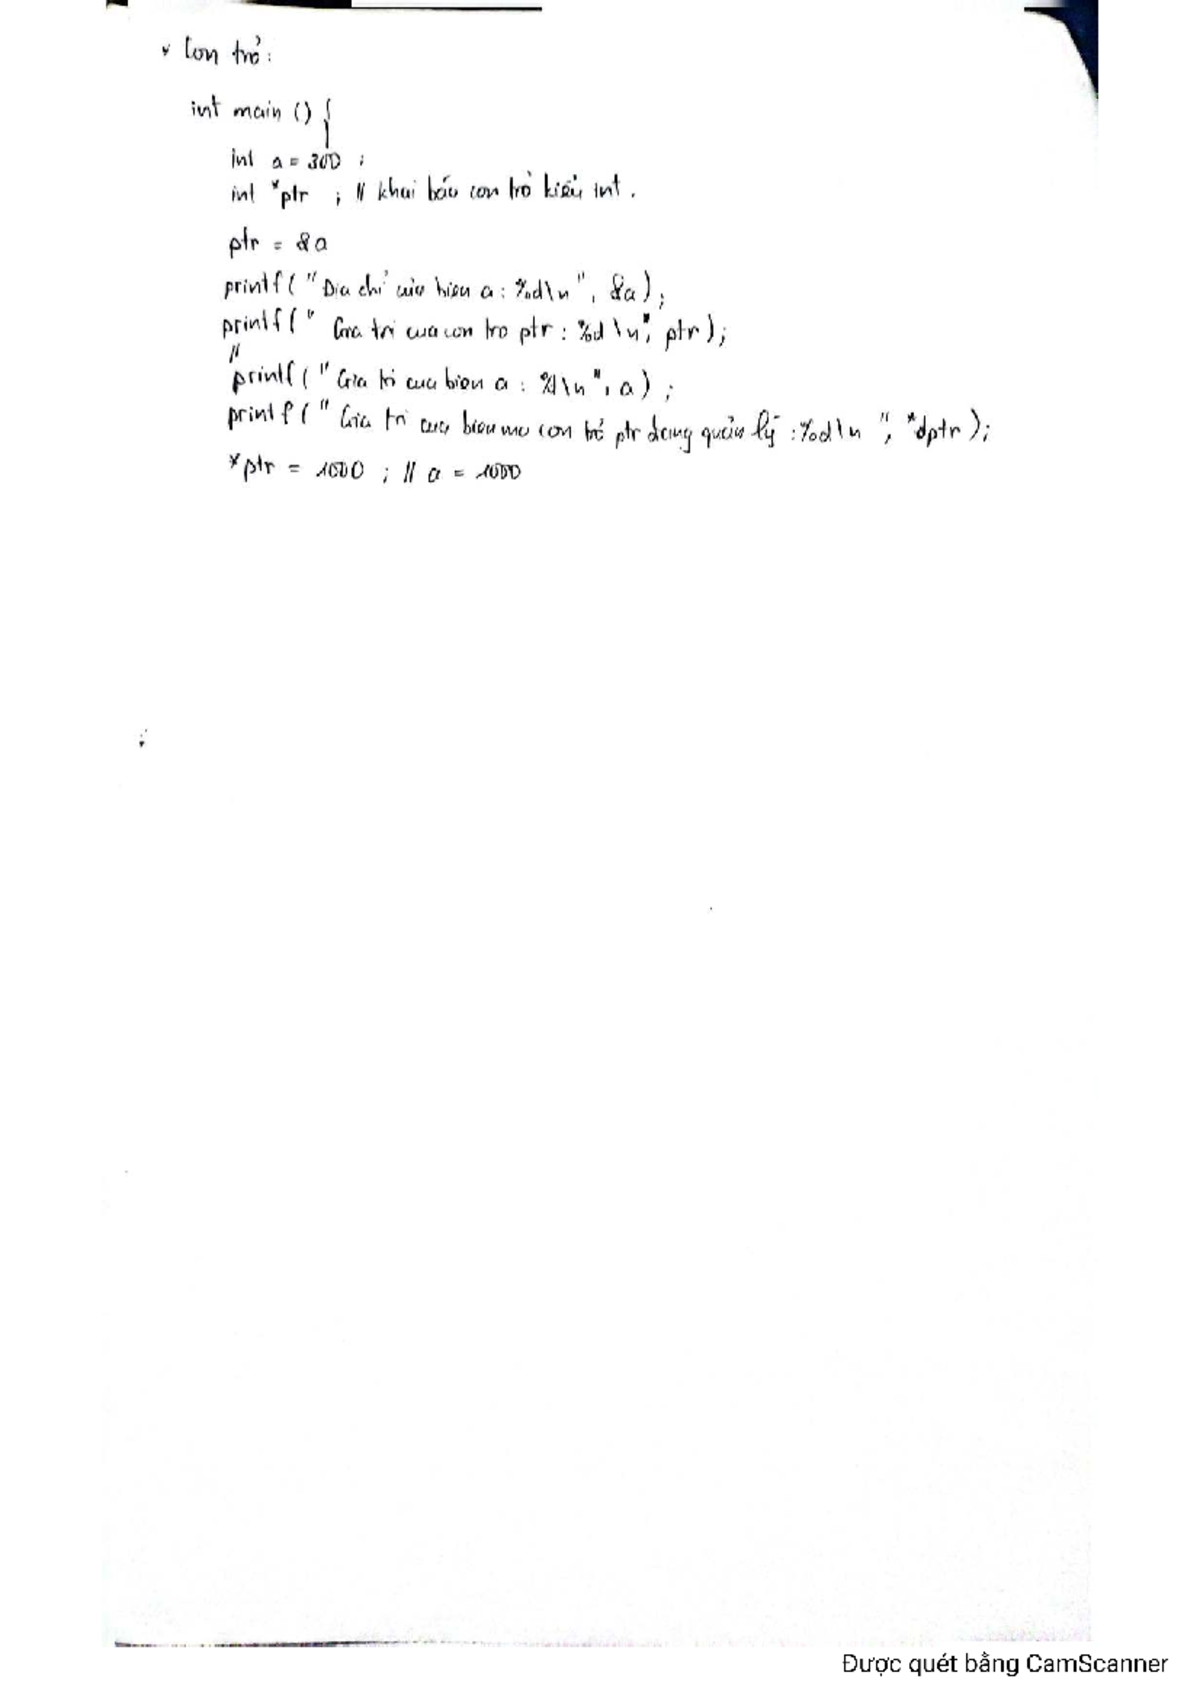 * Con trỏ:
int main () {
int a = 300 ;
int *ptr ; // khai báo con trỏ kiểu int.
ptr = &a
printf( "Dia chỉ của bien a : %d\n", &a );
printf( " Gia tri cua con tro ptr : %d \n", ptr );
//
printf( "Gia tri cua bien a : %d\n", a ) ;
printf( "Gia tri cua bien ma con trỏ ptr dang quản lý : %d\n ", *dptr );
*ptr = 1000 ; // a = 1000
Được quét bằng CamScanner